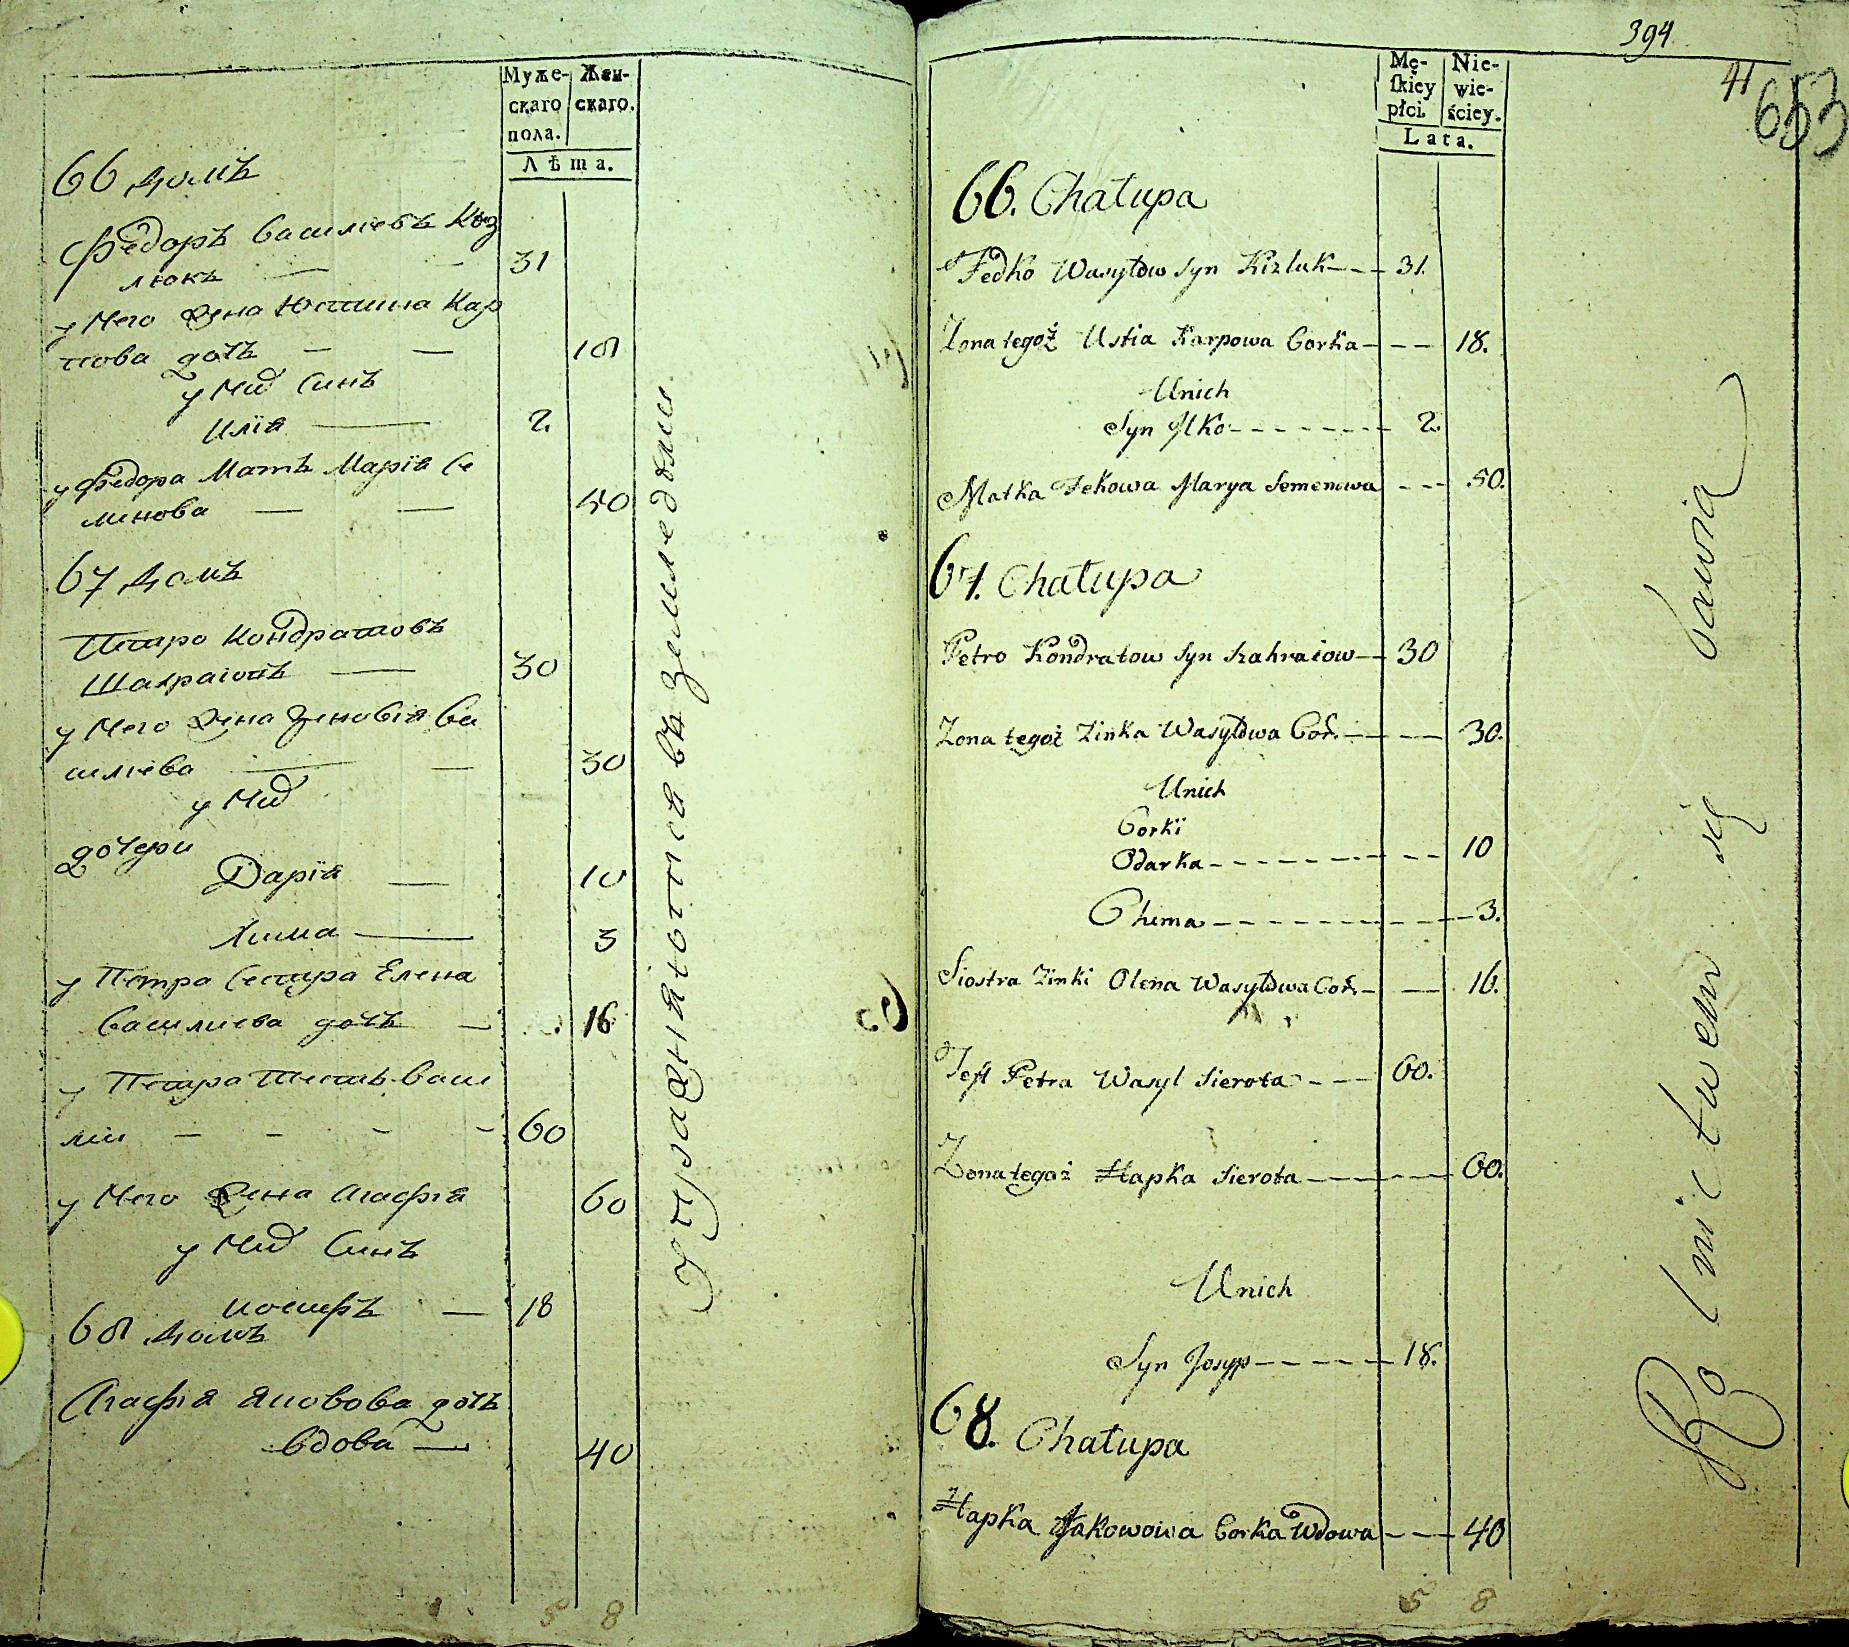 Муже-
скаго
пола.
Жен-
скаго.
Лѣта.
66 домъ
Федоръ Василіевъ Коз
люкъ — — 31
у Него Жена Юстина Кар
пова дочь — — 18
у Них Синъ
Илїя — 2.
у Федора Мать Марїя Се
минова — — 50
67 домъ
Петро Кондратовъ
Шаграювъ — 30
у Него Жена Зѣновія Ва
силіева — — 30
у Них
дочери
Дарїя — 10
Хима — 3
у Петра Сестра Елена
Василиева дочь — 16
у Петра Тесть Васи
лій — — — — 60
у Него Жена Агафія
60
у Них Синъ
Иосифъ — 18
68 домъ
Агафія Яковова дочь
вдова — 40
5 8
упражняются въ земледѣліи
394
41
653
Mę-
ſkiey
płci.
Nie-
wie-
ściey.
Lata.
66. Chałupa
Fedko Wasylow Syn Kizluk - - - 31.
Zona tegoż Ustia Karpowa Corka - - - 18.
Unich
Syn Ilko - - - - - - - 2.
Matka Fekowa Marya Semenowa - - - 50.
67. Chałupa
Petro Kondratow Syn Szahraiow - - 30
Zona tegoż Zinka Wasylowa Cor. - - - 30.
Unich
Corki
Odarka - - - - - - - - 10
Chima - - - - - - - - 3.
Siostra Zinki Olena Wasylowa Cor. - - 16.
Teść Petra Wasyl Sierota - - - 60.
Zona tegoż Hapka Sierota - - - - 60.
Unich
Syn Josyp - - - - - 18.
68. Chałupa
Hapka Jakowowa Corka Wdowa - - - 40
5 8
Rolnictwem się bawią